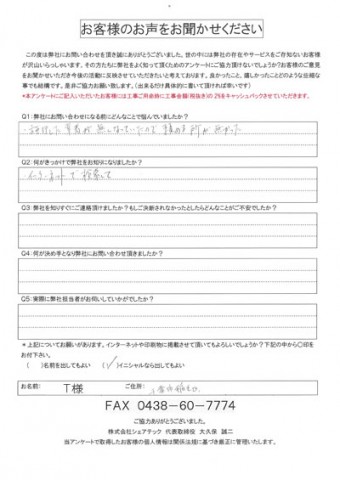 お客様のお声をお聞かせください
この度は弊社にお問い合わせを頂き誠にありがとうございました。世の中には弊社の存在やサービスをご存知ないお客様
が沢山いらっしゃいます。その方たちに弊社をよく知って頂くためのアンケートにご協力頂けないでしょうか?お客様のご意見
をお聞かせいただき今後の活動に反映させていただきたいと考えております。良かったこと、嬉しかったことどのような些細な
事でも結構です。是非ご協力お願い致します。(出来るだけ具体的に書いて頂ければ幸いです)
*本アンケートにご記入いただいたお客様には工事ご用命時に工事金額(税抜き)の2%をキャッシュバックさせていただきます。
Q1:弊社にお問い合わせになる前にどんなことで悩んでいましたか?
Q2:何がきっかけで弊社をお知りになりましたか?
インターネットで検索して
Q3:弊社を知りすぐにご連絡頂けましたか?もしご決断されなかったとしたらどんなことがご不安でしたか?
Q4:何が決め手となり弊社にお問い合わせ頂きましたか?
Q5:実際に弊社担当者がお伺いしていかがでしたか?
*上記についてお願いがあります。インターネットや印刷物に掲載させて頂いてもよろしいでしょうか?下記の中から○印を
お付下さい。
( )名前を出してもよい (✓)イニシャルなら出してもよい
お名前: T様 ご住所:
FAX 0438-60-7774
ご協力ありがとうございました。
株式会社シェアテック 代表取締役 大久保 誠二
当アンケートで取得したお客様の個人情報は関係法規に基づき厳正に管理いたします。